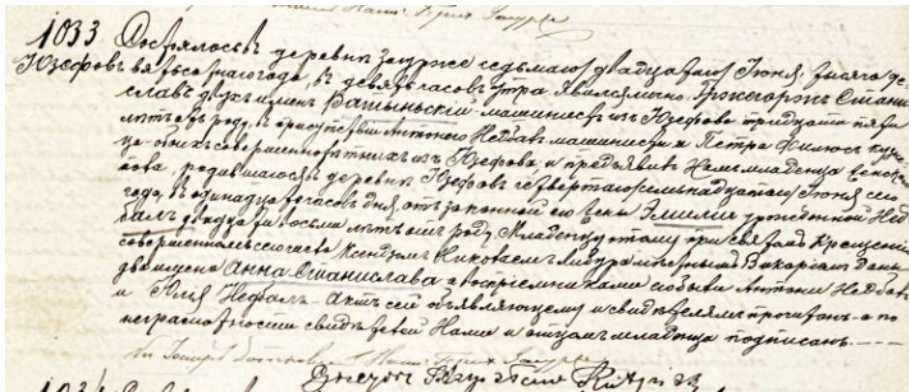 1033
Юзефовъ
Состоялось въ деревни Загурже седьмаго /двадцатаго/ Іюня, тысяча де-
вятьсотнаго года, въ девять часовъ утра. Явился лично Гржегоржъ Стани
славъ двухъ именъ Батыньскій машинистъ изъ Юзефова тридцати пяти
лѣтъ отъ роду, въ присутствіи Антонего Недбалъ машиниста и Петра кузне-
ца обоихъ совершеннолѣтныхъ изъ Юзефова и предъявилъ Намъ младенца женскаго
пола, родившагося въ деревни Юзефовъ четвертаго /семнадцатаго/ Іюня сего
года, въ одинадцать часовъ дня отъ законной его жены Эмиліи урожденной Нед
балъ двадцати восьма лѣтъ отъ роду. Младенцу этому при святомъ Крещеніи
совершенномъ сего числа Ксендзомъ Викаріемъ даны
два имена Анна Станислава а воспріемниками его были Антони Недбалъ
и Юлія Недбалъ. Актъ сей объявляющему и свидѣтелямъ прочитанъ а по
неграмотности свидѣтелей Нами и отцомъ младенца подписанъ.